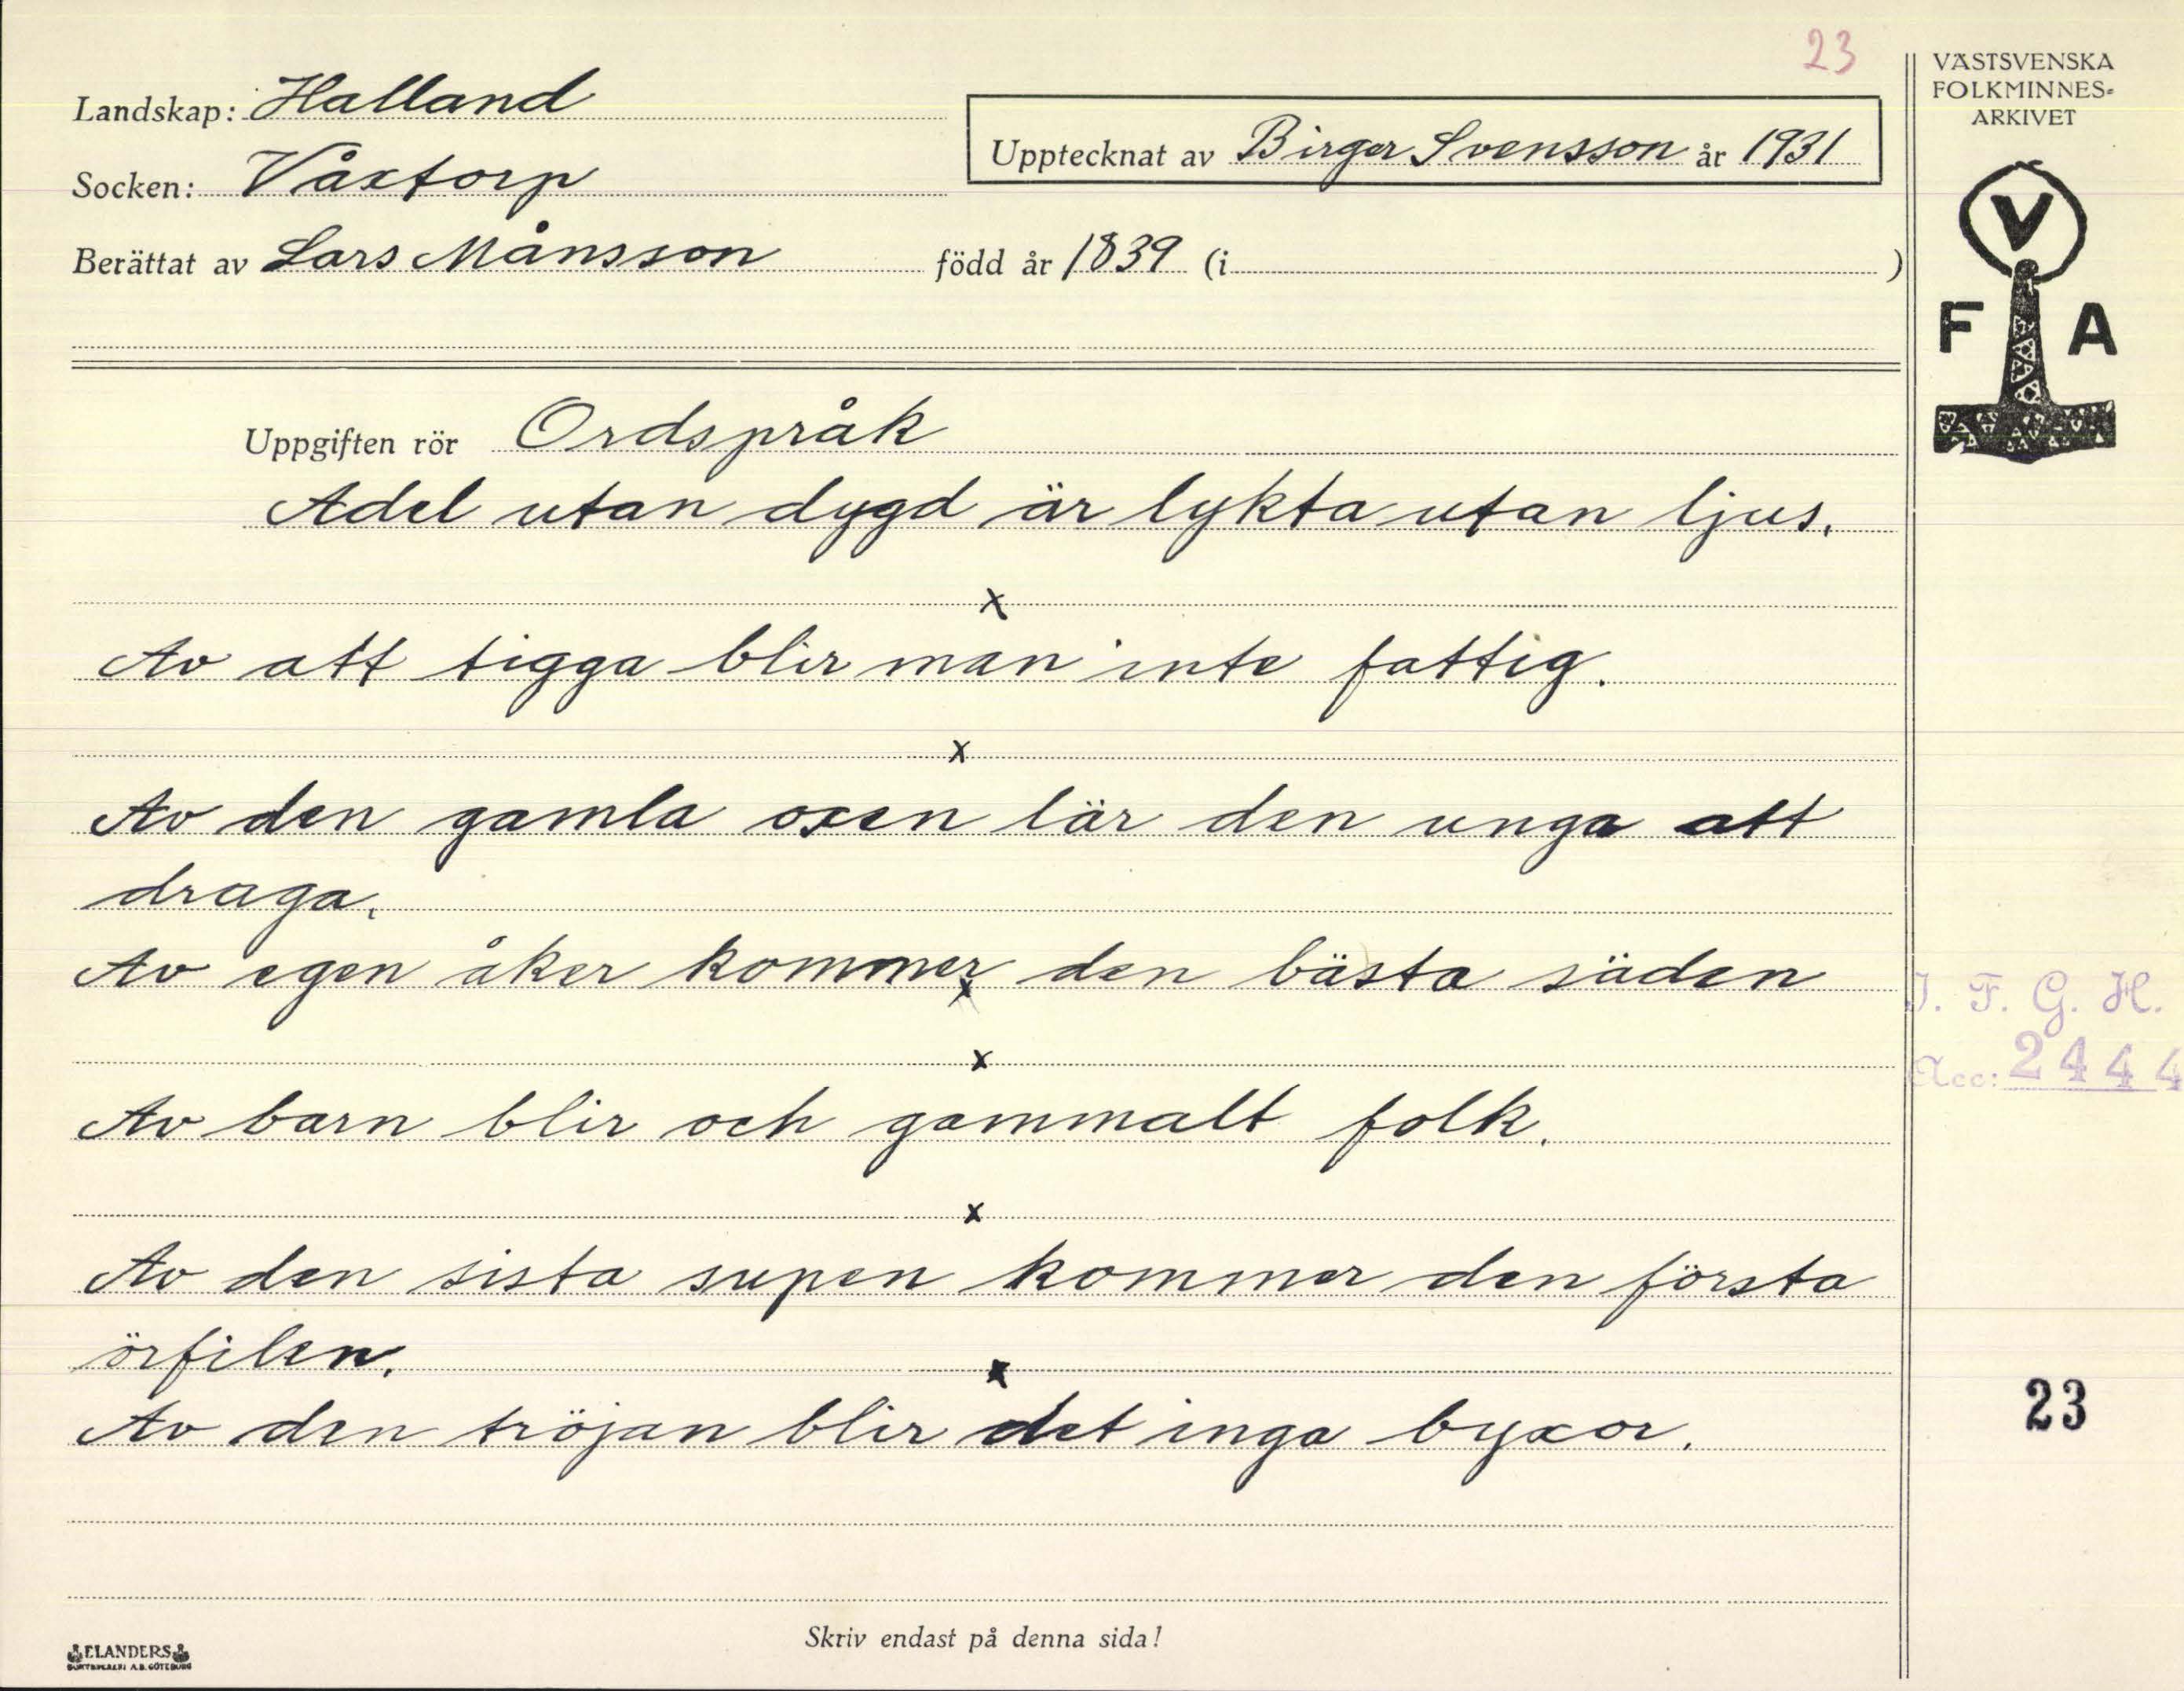 23
Landskap: Halland
Socken: Våxtorp
Upptecknat av Birger Svensson år 1931
Berättat av Lars Månsson född år 1839 (i )
VÄSTSVENSKA
FOLKMINNES-
ARKIVET
V
F A
Uppgiften rör Ordspråk
Adel utan dygd är lykta utan ljus.
x
Av att tigga blir man inte fattig.
x
Av den gamla oxen lär den unga att
draga.
Av egen åker kommer den bästa säden
x
x
Av barn blir och gammalt folk.
x
Av den sista supen kommer den första
örfilen.
x
Av den tröjan blir det inga byxor.
I. F. G. H.
Acc: 2444
23
Skriv endast på denna sida!
ELANDERS
BOKTRYCKERI A.B. GÖTEBORG